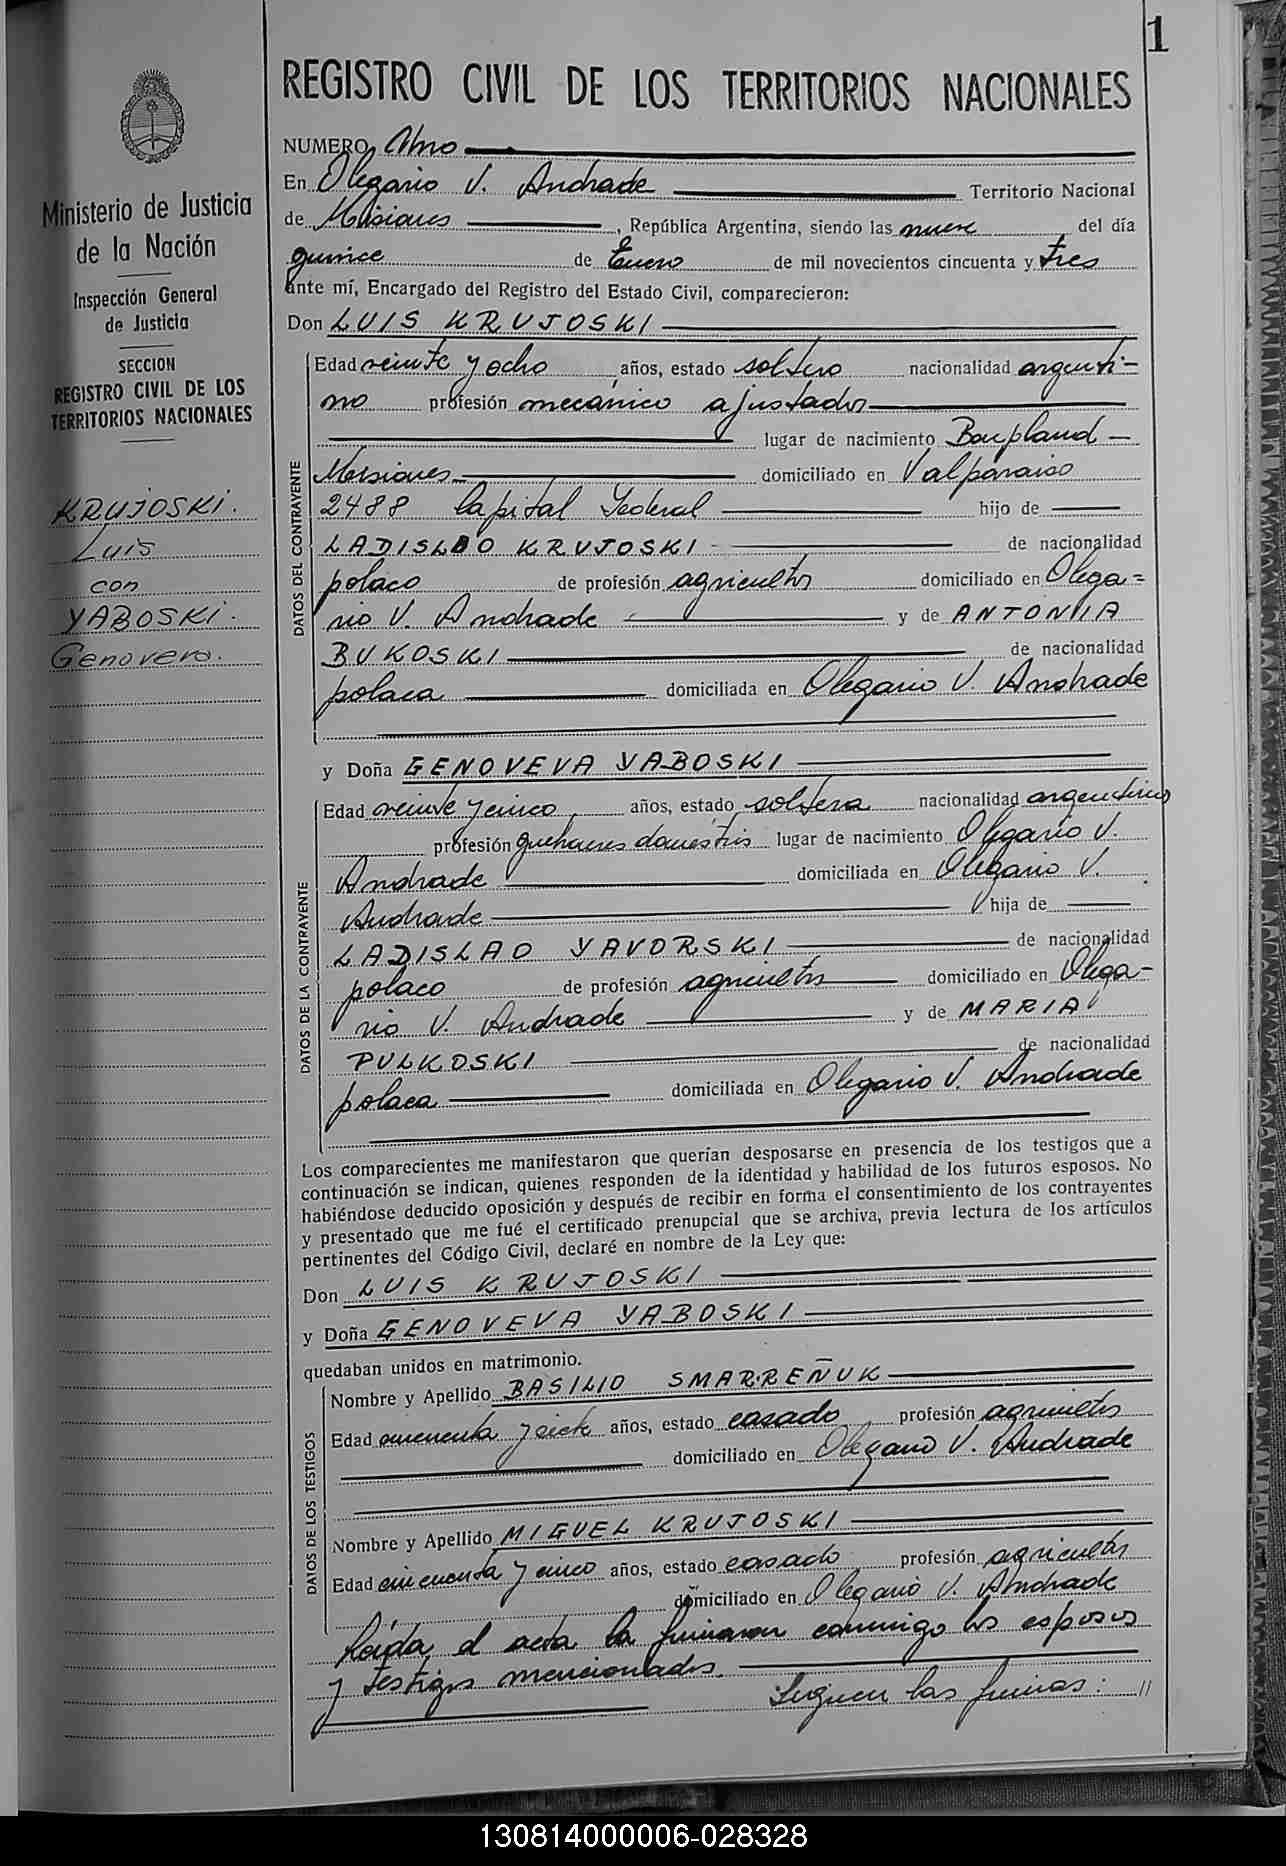 1
REGISTRO CIVIL DE LOS TERRITORIOS NACIONALES
Ministerio de Justicia
de la Nación
Inspección General
de Justicia
SECCION
REGISTRO CIVIL DE LOS
TERRITORIOS NACIONALES
KRUJOSKI.
Luis
con
YABOSKI.
Genoveva.
NUMERO Uno
En Olegario V. Andrade Territorio Nacional
de Misiones, República Argentina, siendo las nueve del día
quince de Enero de mil novecientos cincuenta y tres
ante mí, Encargado del Registro del Estado Civil, comparecieron:
Don LUIS KRUJOSKI
DATOS DEL CONTRAYENTE
Edad veinte y ocho años, estado soltero nacionalidad argenti-
no profesión mecánico ajustador
lugar de nacimiento Bonpland -
Misiones domiciliado en Valparaiso
2488 Capital Federal hijo de
LADISLAO KRUJOSKI de nacionalidad
polaco de profesión agricultor domiciliado en Olega=
rio V. Andrade y de ANTONIA
BUKOSKI de nacionalidad
polaca domiciliada en Olegario V. Andrade
y Doña GENOVEVA YABOSKI
DATOS DE LA CONTRAYENTE
Edad veinte y cinco años, estado soltera nacionalidad argentina
profesión quehaceres domésticos lugar de nacimiento Olegario V.
Andrade domiciliada en Olegario V.
Andrade hija de
LADISLAO YAVORSKI de nacionalidad
polaco de profesión agricultor domiciliado en Olega-
rio V. Andrade y de MARIA
PULKOSKI de nacionalidad
polaca domiciliada en Olegario V. Andrade
Los comparecientes me manifestaron que querían desposarse en presencia de los testigos que a
continuación se indican, quienes responden de la identidad y habilidad de los futuros esposos. No
habiéndose deducido oposición y después de recibir en forma el consentimiento de los contrayentes
y presentado que me fué el certificado prenupcial que se archiva, previa lectura de los artículos
pertinentes del Código Civil, declaré en nombre de la Ley que:
Don LUIS KRUJOSKI
y Doña GENOVEVA YABOSKI
quedaban unidos en matrimonio.
DATOS DE LOS TESTIGOS
Nombre y Apellido BASILIO SMARREÑUK
Edad cincuenta y siete años, estado casado profesión agricultor
domiciliado en Olegario V. Andrade
Nombre y Apellido MIGUEL KRUJOSKI
Edad cincuenta y cinco años, estado casado profesión agricultor
domiciliado en Olegario V. Andrade
Leída el acta la firmaron conmigo los esposos
y testigos mencionados.
Siguen las firmas: //
130814000006-028328